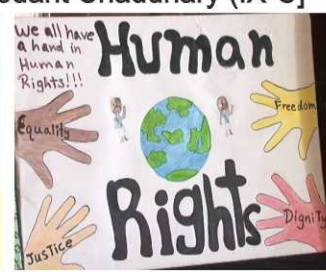 Chaudhary (IX-
We all have
a hand in
Human
Rights!!!
Human
Equality
Freedom
Justice
Rights
Dignity